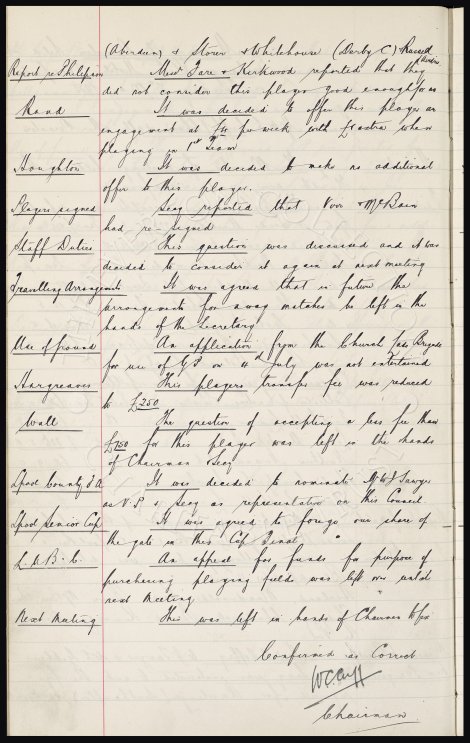 (Aberdeen) & Storer & Whitehouse (Derby C)
Report re Philipson Messrs Fare & Kirkwood reported that they
did not consider this player good enough for us
Rand It was decided to offer this player an
engagement at per week with extra when
playing in 1st Team
Houghton It was decided to make no additional
offer to this player.
Players signed Secy reported that Voor & McBain
had re-signed
Staff Duties This question was discussed and it was
decided to consider it again at next meeting
Travelling Arrangements It was agreed that in future the
arrangements for away matches be left in the
hands of the Secretary
Use of ground An application from the Church Lads Brigade
for use of GP on 4th July was not entertained
Hargreaves This players transfer fee was reduced
to £250
Wall The question of accepting a less fee than
£750 for this player was left in the hands
of Chairman & Secy
Lpool County F.A It was decided to nominate Mr W J Sawyer
as V.P & Secy as representative on this Council
Lpool Senior Cup It was agreed to forego our share of
the gate in this Cup Final
L. & B. C. An appeal for funds for purpose of
purchasing playing fields was left over until
next meeting
Next Meeting This was left in hands of Chairman
Confirmed as Correct
W C Cuff
Chairman